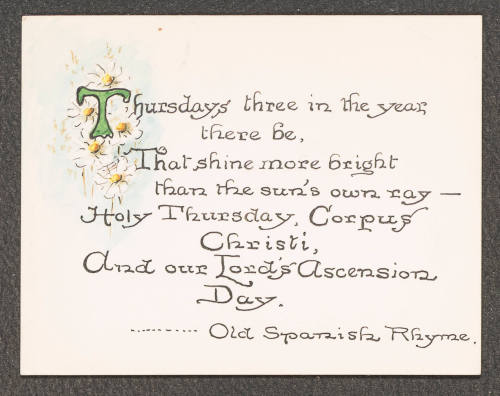 Thursdays three in the year
there be,
That shine more bright
than the sun's own ray —
Holy Thursday, Corpus
Christi,
And our Lord's Ascension
Day.
.......... Old Spanish Rhyme.